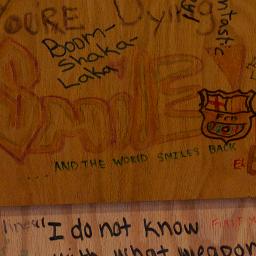 YOURE Dying
Boom-
Shaka-
Laka
Smile!
FCB
... AND THE WORLD SMILES BACK
I do not know
with what weapon